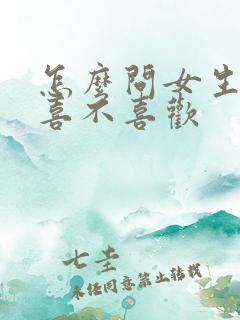 怎麼問女生
喜不喜歡
七圭
未經同意禁止轉載